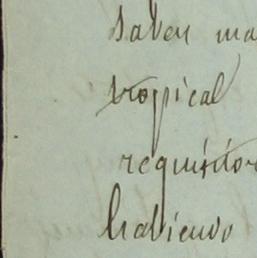 saben ma
tropical
requisitor
habiendo